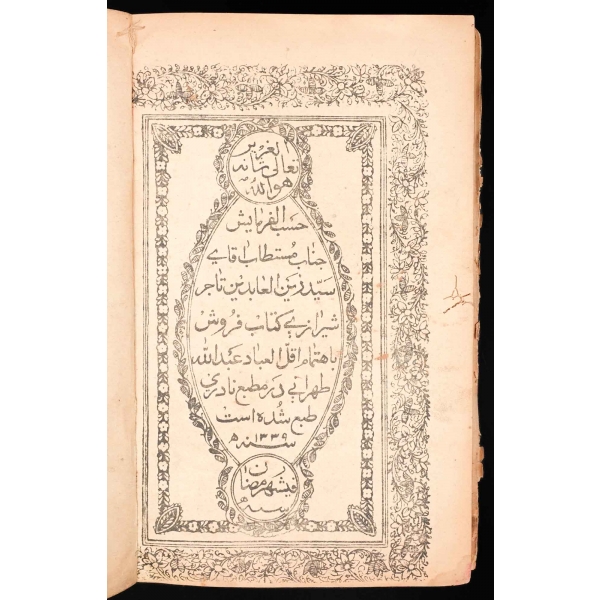 هو الله
تعالی شانه
العزیز
حسب الفرمایش
جناب مستطاب اقای
سیّد زین العابدین تاجر
شیرازی کتاب فروش
باهتمام اقلّ العباد عبدالله
طهرانی در مطبع نادری
طبع شده است
سنه ۱۳۳۹ ه
فیشهر رمضان
سنه